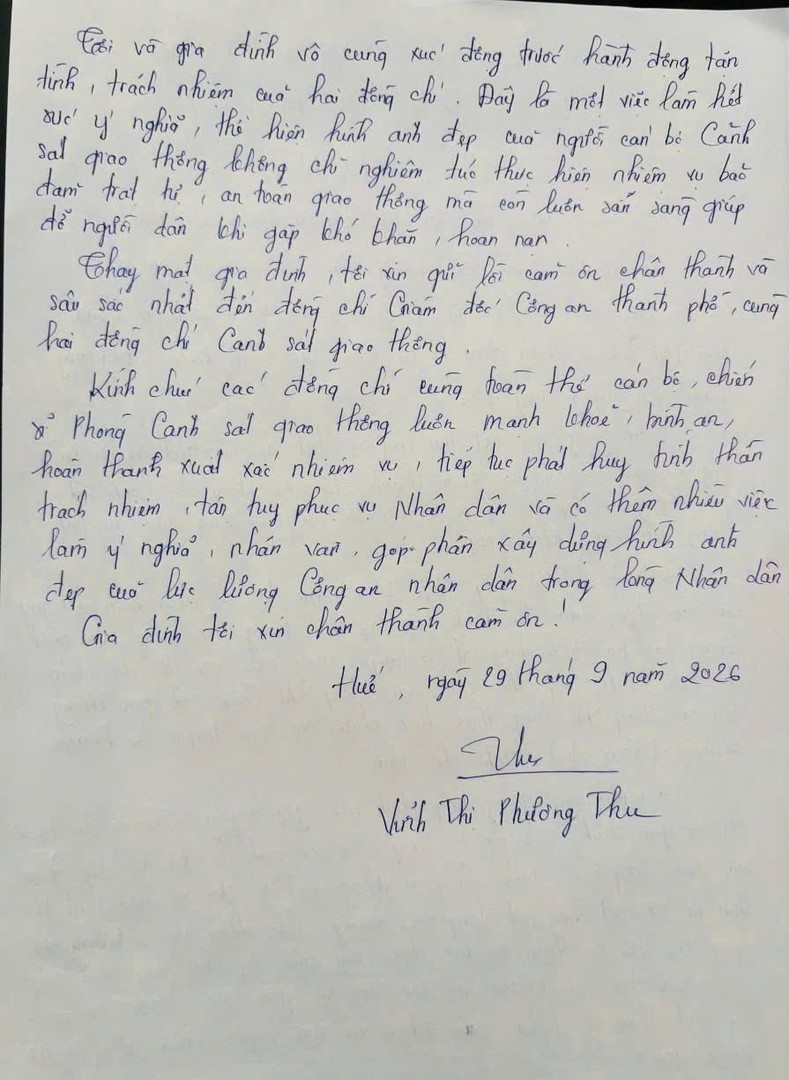 Tôi và gia đình vô cùng xúc động trước hành động tận
tình, trách nhiệm của hai đồng chí. Đây là một việc làm hết
sức ý nghĩa, thể hiện hình ảnh đẹp của người cán bộ Cảnh
sát giao thông không chỉ nghiêm túc thực hiện nhiệm vụ bảo
đảm trật tự, an toàn giao thông mà còn luôn sẵn sàng giúp
đỡ người dân khi gặp khó khăn, hoạn nạn.
Thay mặt gia đình, tôi xin gửi lời cảm ơn chân thành và
sâu sắc nhất đến đồng chí Giám đốc Công an thành phố, cùng
hai đồng chí Cảnh sát giao thông.
Kính chúc các đồng chí cùng toàn thể cán bộ, chiến
sĩ Phòng Cảnh sát giao thông luôn mạnh khoẻ, bình an,
hoàn thành xuất xắc nhiệm vụ, tiếp tục phát huy tinh thần
trách nhiệm, tận tuỵ phục vụ Nhân dân và có thêm nhiều việc
làm ý nghĩa, nhân văn, góp phần xây dựng hình ảnh
đẹp của lực lượng Công an nhân dân trong lòng Nhân dân
Gia đình tôi xin chân thành cảm ơn!
Huế, ngày 29 tháng 9 năm 2026
Thu
Vĩnh Thị Phương Thu